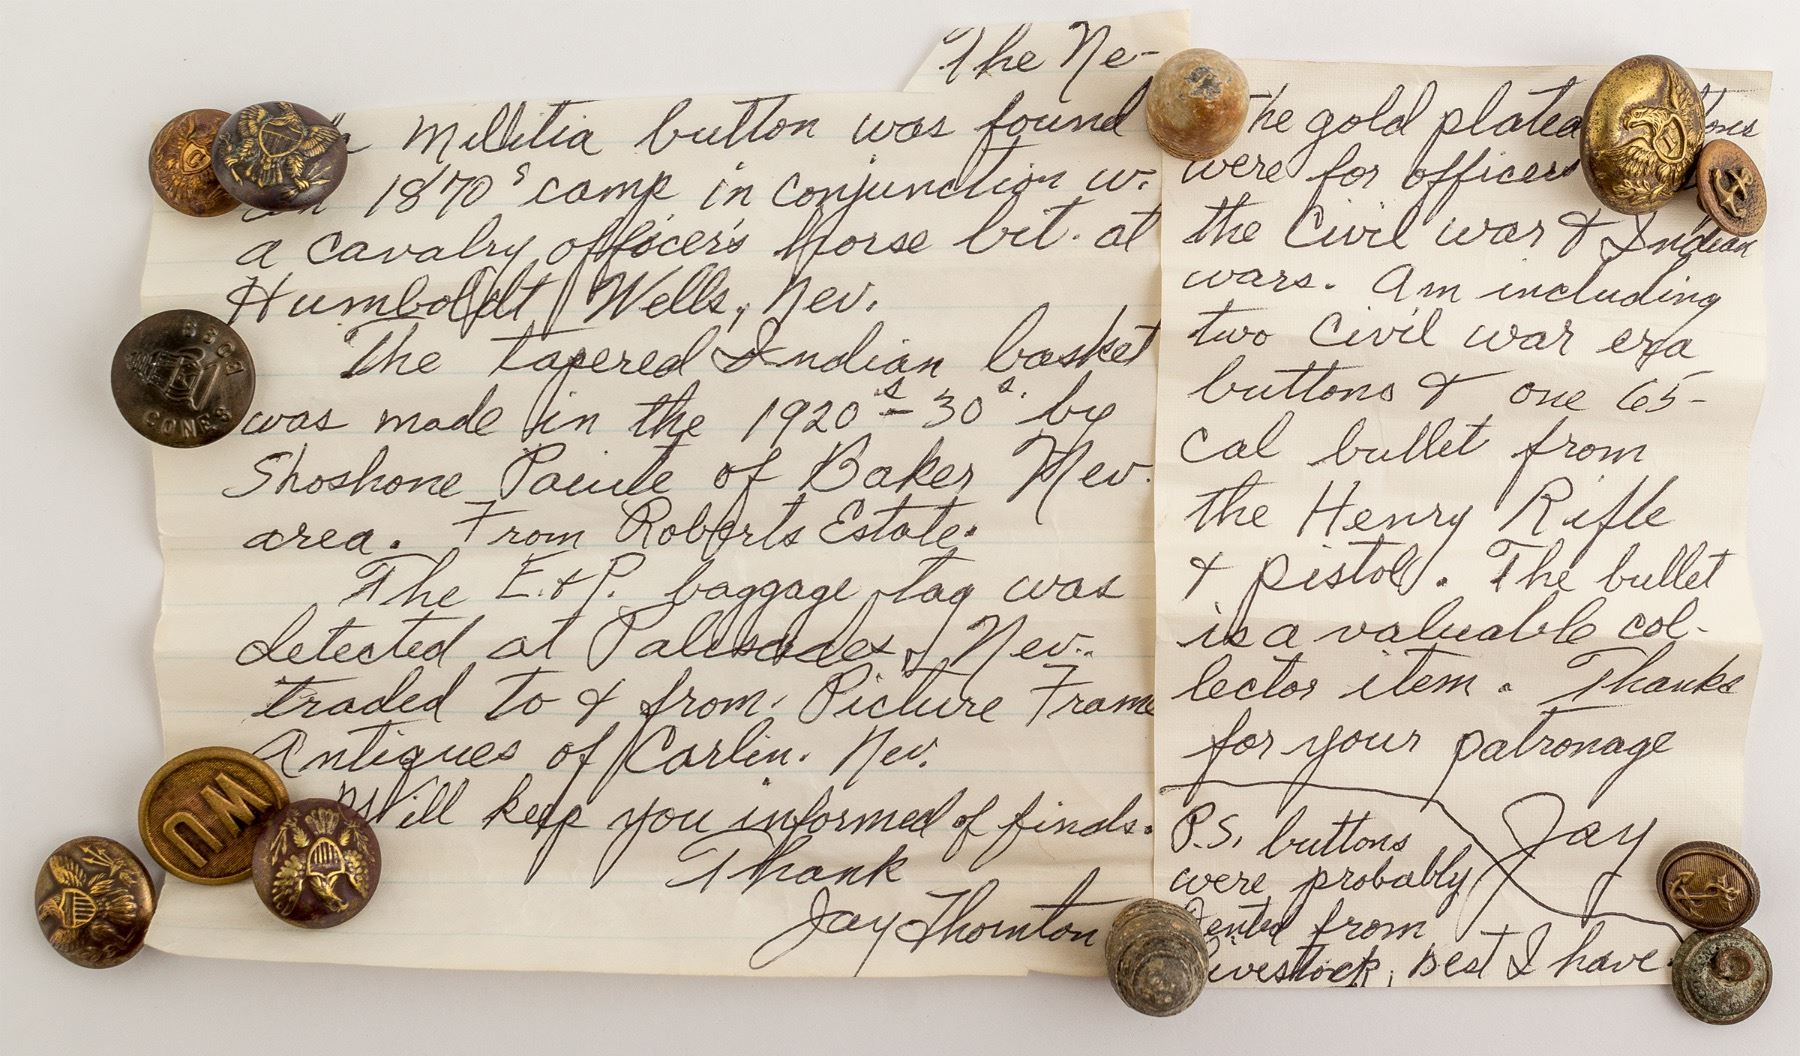 The Ne-
Militia button was found
an 1870s camp in conjunction w.
a cavalry officer's horse bit. at
Humboldt Wells, Nev.
The tapered Indian basket
was made in the 1920s-30s. by
Shoshone Paiute of Baker Nev.
area. From Roberts Estate.
The E.&P. baggage tag was
detected at Palisades, Nev..
traded to & from. Picture Frame
Antiques of Carlin. Nev.
Will keep you informed of finds.
Thank
Jay Thornton
The gold plated
were for officers
the Civil war & Indian
wars. Am including
two Civil war era
buttons & one 65-
cal bullet from
the Henry Rifle
& pistol. The bullet
is a valuable col-
lector item. Thanks
for your patronage
Jay
P.S. buttons
were probably
dented from
livestock, Best I have.
CONGS
WU